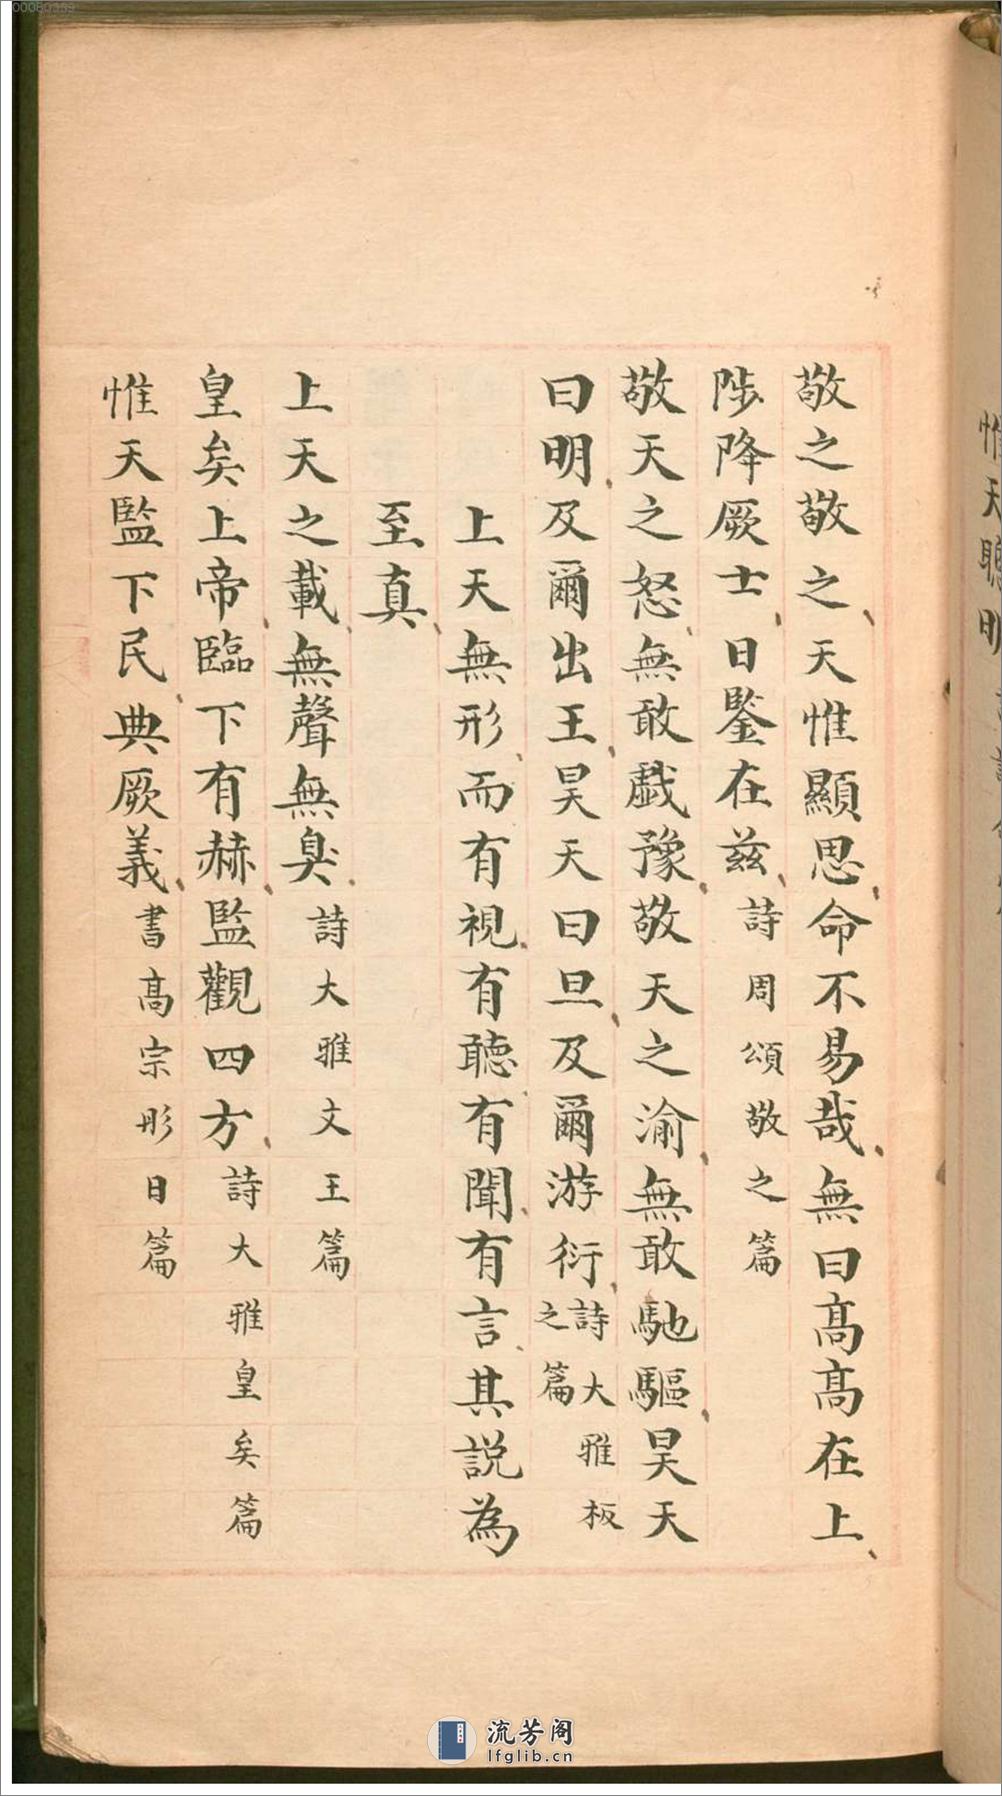 敬之敬之天惟顯思命不易哉無曰高高在上
陟降厥士日鑒在茲詩周頌敬之篇
敬天之怒無敢戲豫敬天之渝無敢馳驅昊天
曰明及爾出王昊天曰旦及爾游衍詩大雅板之篇
上天無形而有視有聽有聞有言其説為
至真
上天之載無聲無臭詩大雅文王篇
皇矣上帝臨下有赫監觀四方詩大雅皇矣篇
惟天監下民典厥義書高宗肜日篇
惟天聰明
00080359
流芳阁
lfglib.cn